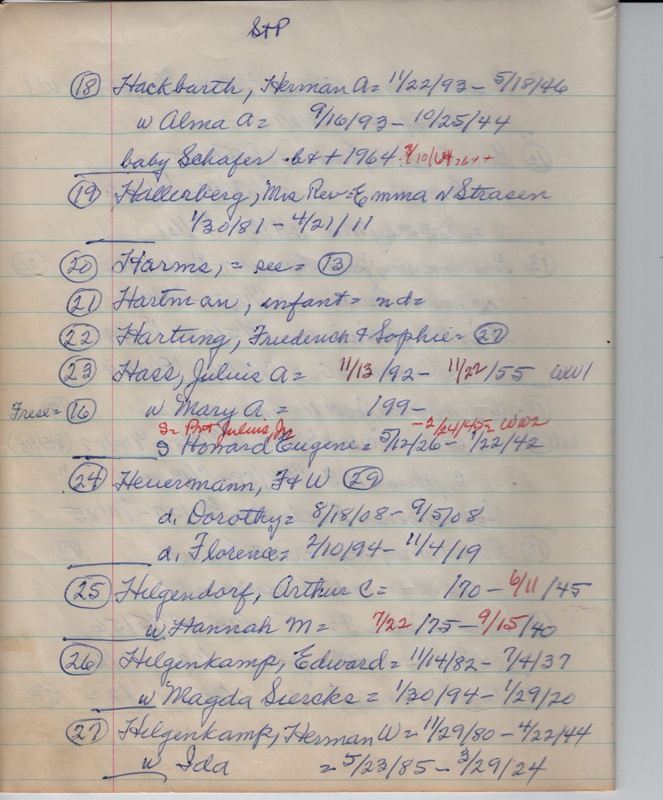 StP
(18) Hackbarth, Herman A= 11/22/93 - 5/18/46
w Alma A= 9/16/93 - 10/25/44
baby Schafer b++ 1964 3/10/64
(19) Hallerberg, Mrs Rev = Emma N Strasen
1/30/81 - 4/21/11
(20) Harms, = see = (13)
(21) Hartman, infant = nd=
(22) Hartung, Friederich & Sophie = (27)
(23) Hass, Julius A = 11/13/92 - 11/22/55 WW1
Frese = (16) w Mary A. = 199-
S= Pvt Julius, Jr -2/24/45= WW2
S Howard Eugene = 5/12/26 - 1/22/42
(24) Heuermann, F & W (29)
d. Dorothy = 8/18/08 - 9/5/08
d. Florence = 2/10/94 - 11/4/19
(25) Hilgendorf, Arthur C = /70 - 6/11/45
w Hannah M = 7/22/75 - 9/15/40
(26) Hilgenkamp, Edward = 11/14/82 - 7/4/37
w Magda Siercks = 1/30/94 - 1/29/20
(27) Hilgenkamp, Herman W = 11/29/80 - 4/22/44
w Ida = 5/23/85 - 3/29/24